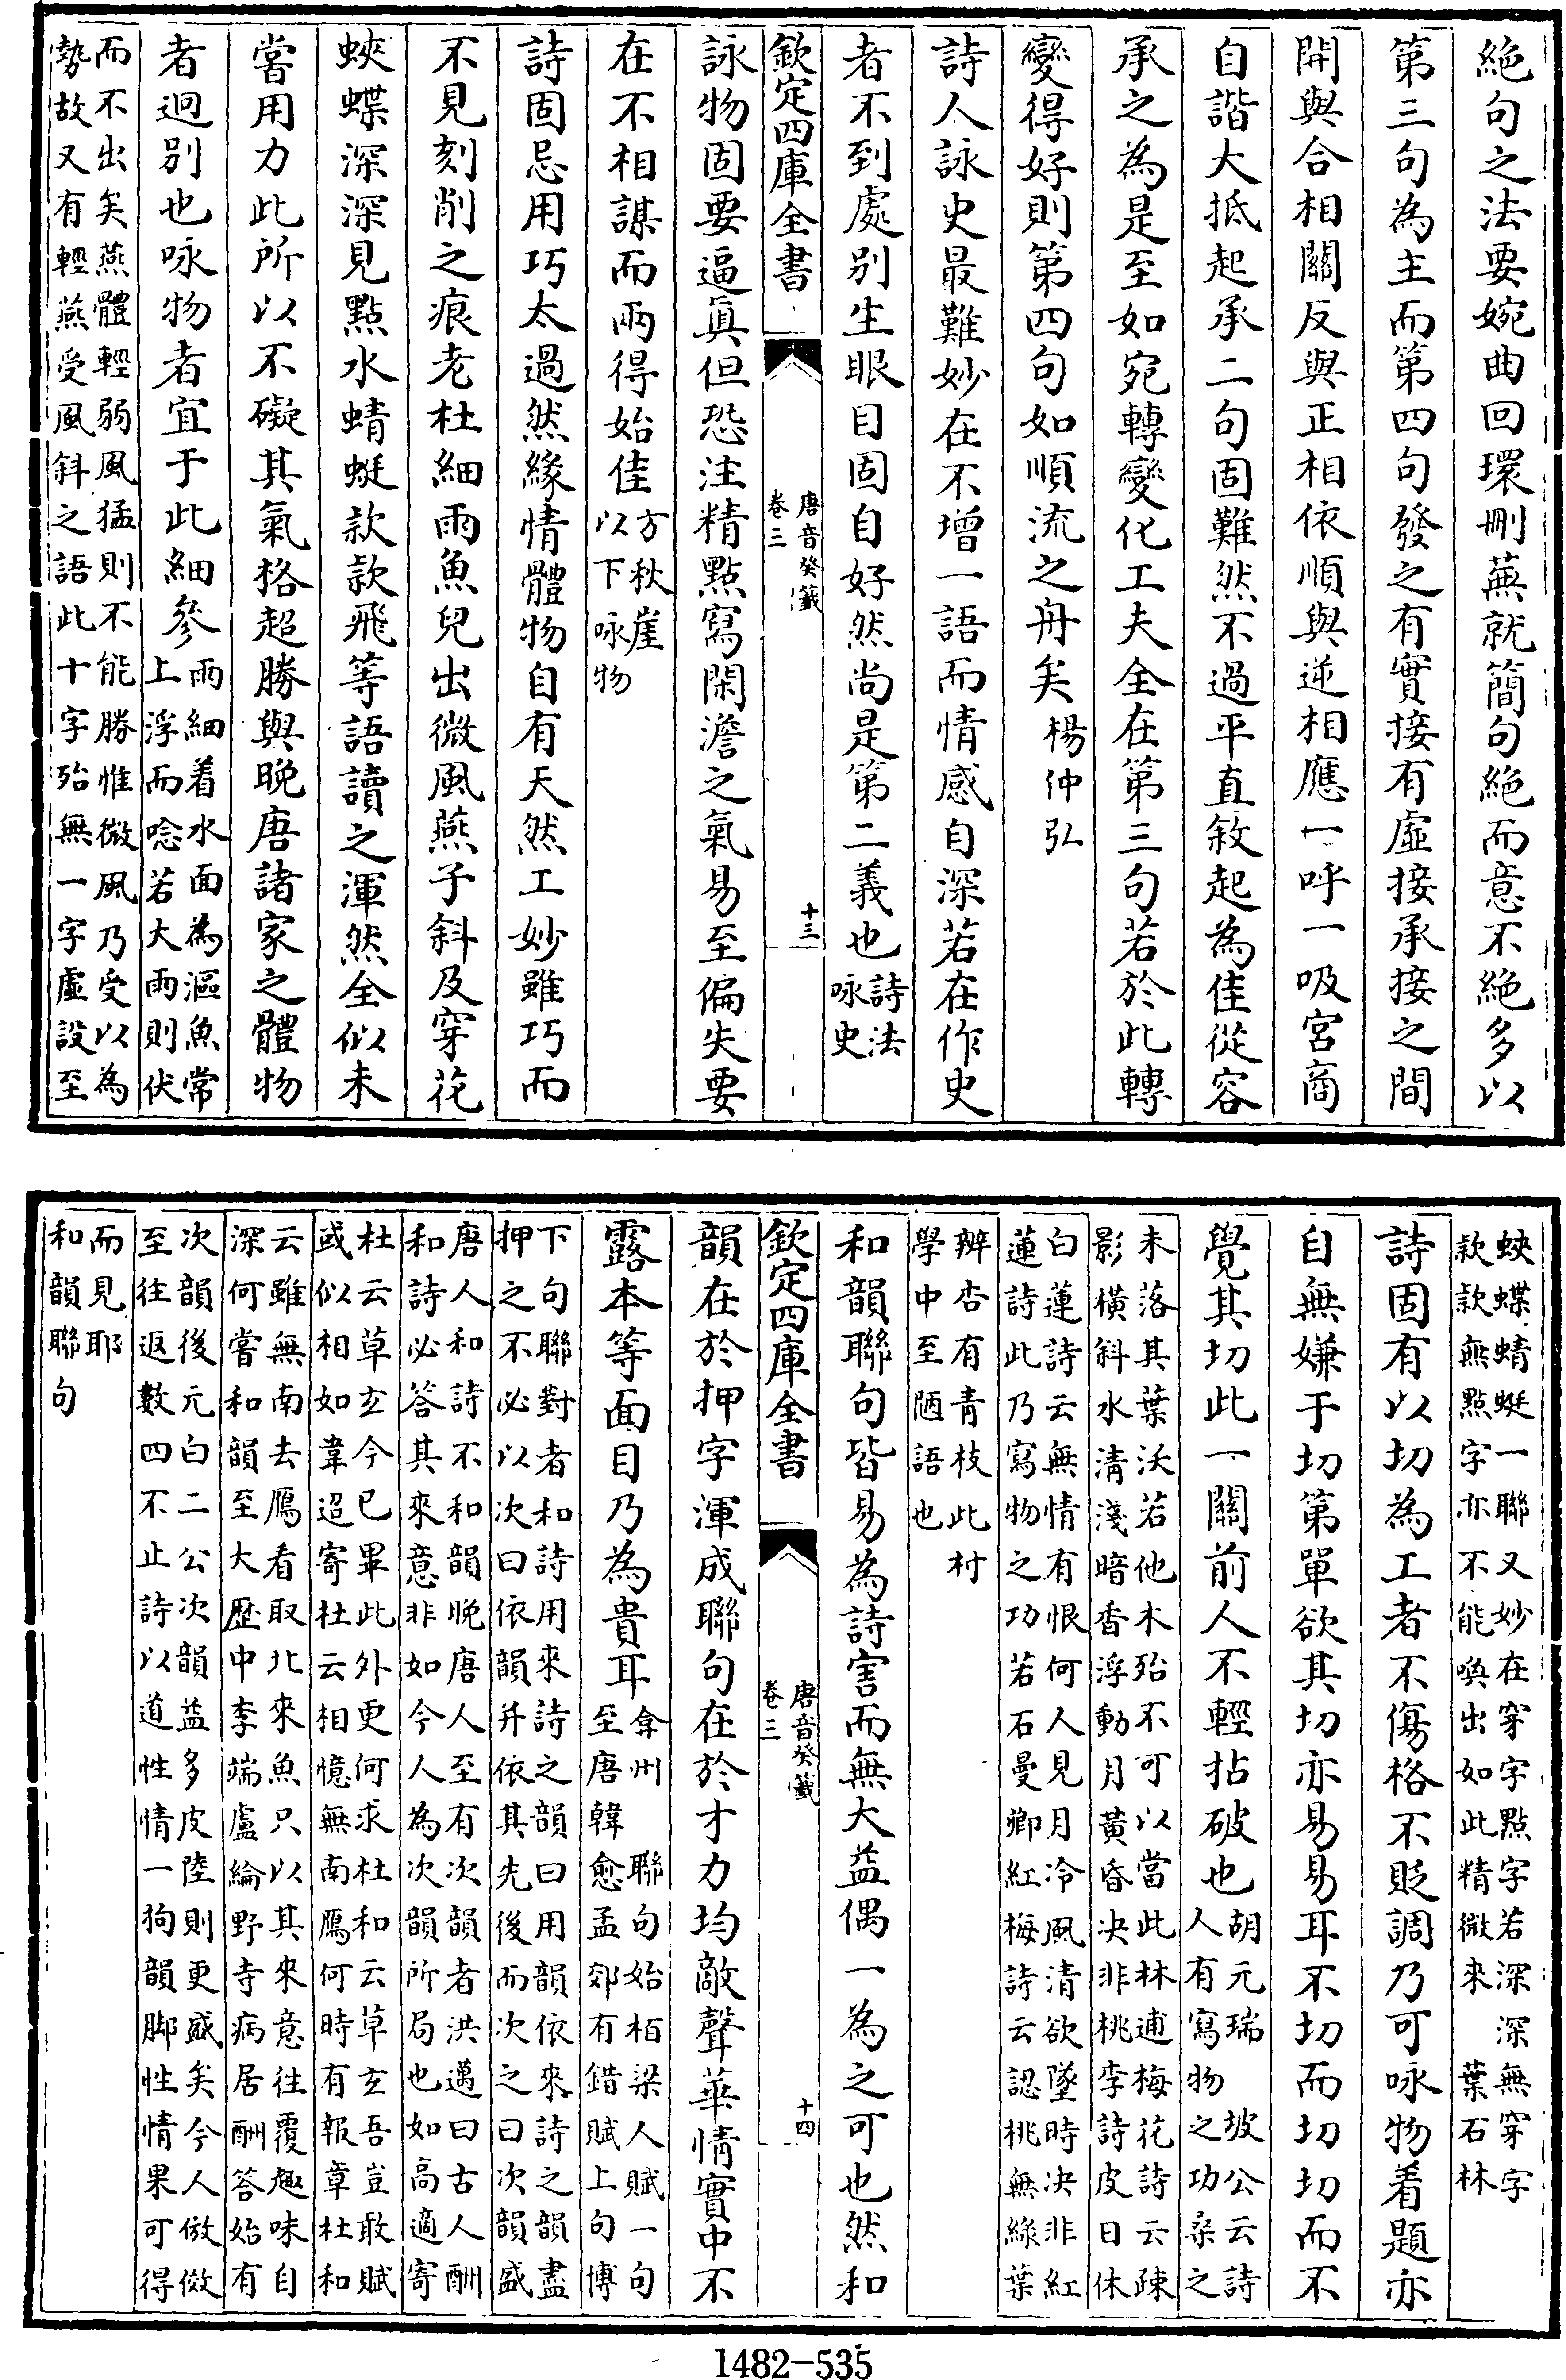 絕句之法要婉曲回環刪蕪就簡句絕而意不絕多以
第三句為主而第四句發之有實接有虛接承接之間
開與合相關反與正相依順與逆相應一呼一吸宮商
自諧大抵起承二句固難然不過平直敘起為佳從容
承之為是至如宛轉變化工夫全在第三句若於此轉
變得好則第四句如順流之舟矣楊仲弘
詩人詠史最難妙在不增一語而情感自深若在作史
者不到處別生眼目固自好然尚是第二義也詩法
咏史
欽定四庫全書
唐音癸籤
卷三
十三
詠物固要逼真但恐注精點寫閑澹之氣易至偏失要
在不相謀而兩得始佳方秋崖
以下咏物
詩固忌用巧太過然緣情體物自有天然工妙雖巧而
不見刻削之痕老杜細雨魚兒出微風燕子斜及穿花
蛺蝶深深見點水蜻蜓款款飛等語讀之渾然全似未
嘗用力此所以不礙其氣格超勝與晚唐諸家之體物
者迥別也咏物者宜于此細參雨細着水面為漚魚常
上浮而唸若大雨則伏
而不出矣燕體輕弱風猛則不能勝惟微風乃受以為
勢故又有輕燕受風斜之語此十字殆無一字虛設至
蛺蝶蜻蜓一聯又妙在穿字點字若深深無穿字
款款無點字亦不能喚出如此精微來 葉石林
詩固有以切為工者不傷格不貶調乃可咏物着題亦
自無嫌于切第單欲其切亦易易耳不切而切切而不
覺其切此一關前人不輕拈破也胡元瑞 坡公云詩
人有寫物之功桑之
未落其葉沃若他木殆不可以當此林逋梅花詩云疎
影橫斜水清淺暗香浮動月黃昏决非桃李詩皮日休
白蓮詩云無情有恨何人見月冷風清欲墜時决非紅
蓮詩此乃寫物之功若石曼卿紅梅詩云認桃無綠葉
辨杏有青枝此村
學中至陋語也
和韻聯句皆易為詩害而無大益偶一為之可也然和
欽定四庫全書
唐音癸籤
卷三
十四
韻在於押字渾成聯句在於才力均敵聲華情實中不
露本等面目乃為貴耳弇州 聯句始栢梁人賦一句
至唐韓愈孟郊有錯賦上句博
下句聯對者和詩用來詩之韻曰用韻依來詩之韻盡
押之不必以次曰依韻并依其先後而次之曰次韻盛
唐人和詩不和韻晚唐人至有次韻者洪邁曰古人酬
和詩必答其來意非如今人為次韻所局也如高適寄
杜云草玄今已畢此外更何求杜和云草玄吾豈敢賦
或似相如韋迢寄杜云相憶無南鴈何時有報章杜和
云雖無南去鴈看取北來魚只以其來意往覆趣味自
深何嘗和韻至大歷中李端盧綸野寺病居酬答始有
次韻後元白二公次韻益多皮陸則更盛矣今人倣傚
至往返數四不止詩以道性情一狥韻脚性情果可得
而見耶
和韻聯句
1482-535